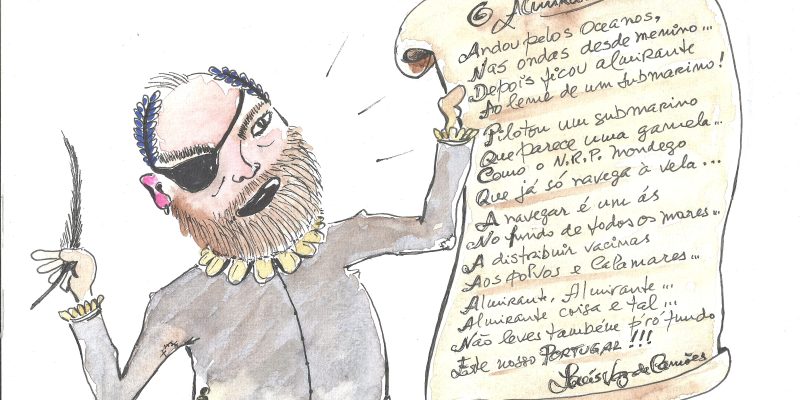 O Almirante
Andou pelos Oceanos,
Nas ondas desde menino...
Depois ficou almirante
Ao leme de um submarino!
Pilotou um submarino
Que parece uma gamela...
Como o N.R.P. Mondego
Que já só navega à vela...
A navegar é um ás
No fundo de todos os mares...
A distribuir vacinas
Aos polvos e calamares...
Almirante, Almirante...
Almirante coisa e tal...
Não leves também p'ró fundo
Este nosso PORTUGAL!!!
Vaz de Camões